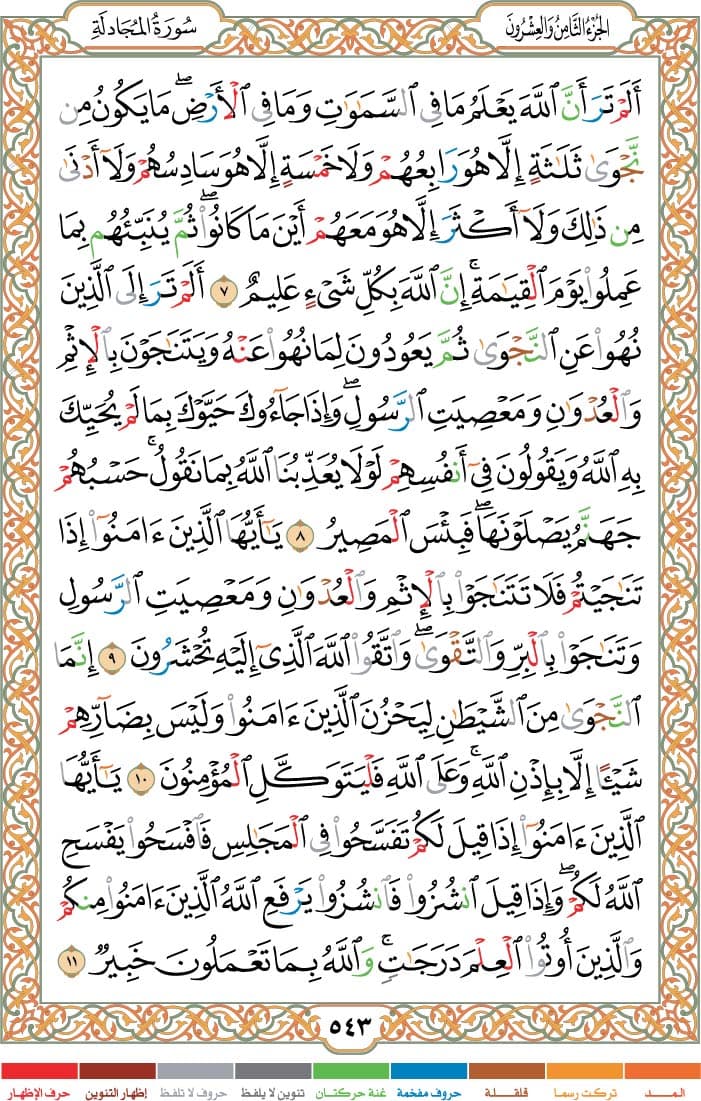 الجُزْءُ الثَّامِنُ وَالعِشْرُونَ
سُورَةُ المُجَادلَةِ
أَلَمْ تَرَ أَنَّ ٱللَّهَ يَعْلَمُ مَا فِى ٱلسَّمَٰوَٰتِ وَمَا فِى ٱلْأَرْضِ ۖ مَا يَكُونُ مِن
نَّجْوَىٰ ثَلَٰثَةٍ إِلَّا هُوَ رَابِعُهُمْ وَلَا خَمْسَةٍ إِلَّا هُوَ سَادِسُهُمْ وَلَآ أَدْنَىٰ
مِن ذَٰلِكَ وَلَآ أَكْثَرَ إِلَّا هُوَ مَعَهُمْ أَيْنَ مَا كَانُوا۟ ۖ ثُمَّ يُنَبِّئُهُم بِمَا
عَمِلُوا۟ يَوْمَ ٱلْقِيَٰمَةِ ۚ إِنَّ ٱللَّهَ بِكُلِّ شَىْءٍ عَلِيمٌ ٧ أَلَمْ تَرَ إِلَى ٱلَّذِينَ
نُهُوا۟ عَنِ ٱلنَّجْوَىٰ ثُمَّ يَعُودُونَ لِمَا نُهُوا۟ عَنْهُ وَيَتَنَٰجَوْنَ بِٱلْإِثْمِ
وَٱلْعُدْوَٰنِ وَمَعْصِيَتِ ٱلرَّسُولِ ۖ وَإِذَا جَآءُوكَ حَيَّوْكَ بِمَا لَمْ يُحَيِّكَ
بِهِ ٱللَّهُ وَيَقُولُونَ فِىٓ أَنفُسِهِمْ لَوْلَا يُعَذِّبُنَا ٱللَّهُ بِمَا نَقُولُ ۚ حَسْبُهُمْ
جَهَنَّمُ يَصْلَوْنَهَا ۖ فَبِئْسَ ٱلْمَصِيرُ ٨ يَٰٓأَيُّهَا ٱلَّذِينَ ءَامَنُوٓا۟ إِذَا
تَنَٰجَيْتُمْ فَلَا تَتَنَٰجَوْا۟ بِٱلْإِثْمِ وَٱلْعُدْوَٰنِ وَمَعْصِيَتِ ٱلرَّسُولِ
وَتَنَٰجَوْا۟ بِٱلْبِرِّ وَٱلتَّقْوَىٰ ۖ وَٱتَّقُوا۟ ٱللَّهَ ٱلَّذِىٓ إِلَيْهِ تُحْشَرُونَ ٩ إِنَّمَا
ٱلنَّجْوَىٰ مِنَ ٱلشَّيْطَٰنِ لِيَحْزُنَ ٱلَّذِينَ ءَامَنُوا۟ وَلَيْسَ بِضَآرِّهِمْ
شَيْـًٔا إِلَّا بِإِذْنِ ٱللَّهِ ۚ وَعَلَى ٱللَّهِ فَلْيَتَوَكَّلِ ٱلْمُؤْمِنُونَ ١٠ يَٰٓأَيُّهَا
ٱلَّذِينَ ءَامَنُوٓا۟ إِذَا قِيلَ لَكُمْ تَفَسَّحُوا۟ فِى ٱلْمَجَٰلِسِ فَٱفْسَحُوا۟ يَفْسَحِ
ٱللَّهُ لَكُمْ ۖ وَإِذَا قِيلَ ٱنشُزُوا۟ فَٱنشُزُوا۟ يَرْفَعِ ٱللَّهُ ٱلَّذِينَ ءَامَنُوا۟ مِنكُمْ
وَٱلَّذِينَ أُوتُوا۟ ٱلْعِلْمَ دَرَجَٰتٍ ۚ وَٱللَّهُ بِمَا تَعْمَلُونَ خَبِيرٌ ١١
٥٤٣
المـــد تركت رسما قلقـــلة حروف مفخمة غنة حركتـان تنوين لا يلفظ حروف لا تلفظ إظهار التنوين حرف الإظهار